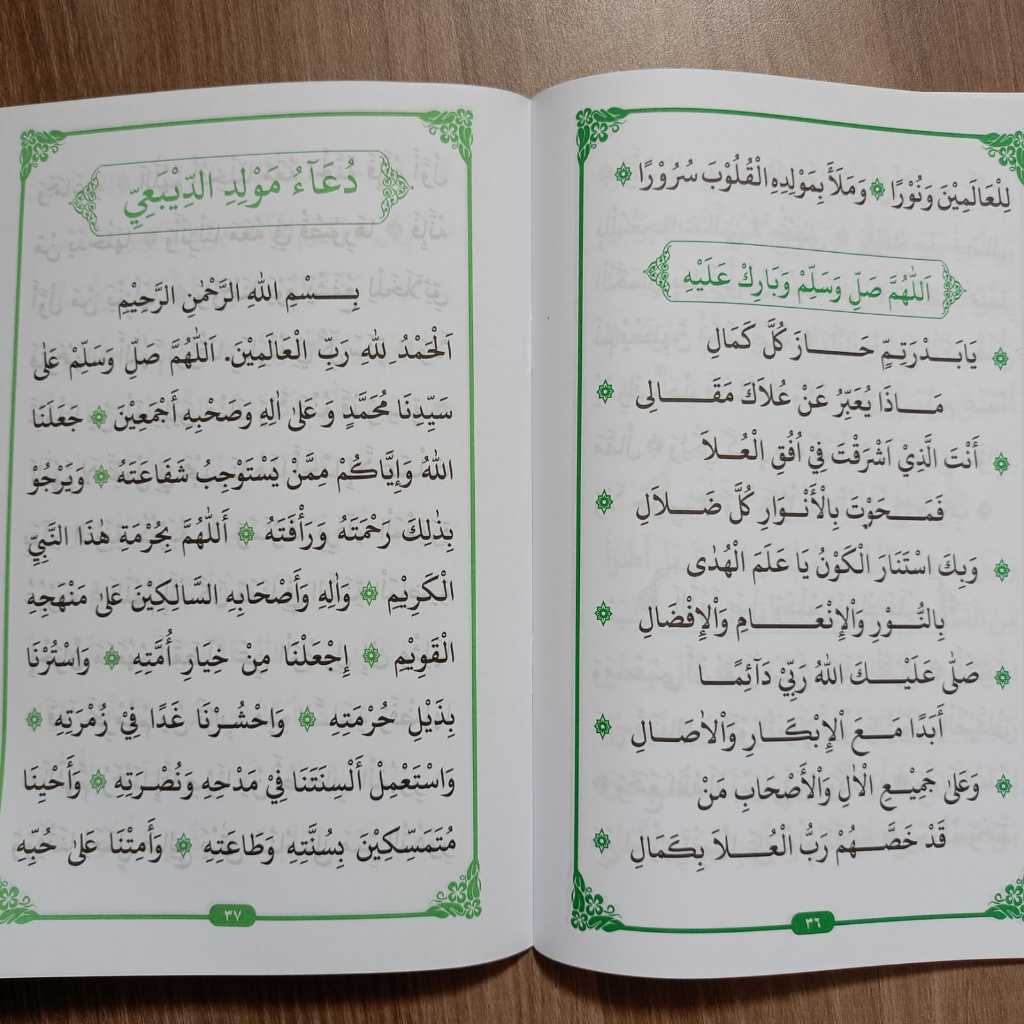 لِلْعَالَمِيْنَ وَنُوْرًا ۞ وَمَلَأَ بِمَوْلِدِهِ الْقُلُوْبَ سُرُوْرًا ۞
اَللّٰهُمَّ صَلِّ وَسَلِّمْ وَبَارِكْ عَلَيْهِ
۞ يَابَدْرَتِمٍّ حَازَ كُلَّ كَمَالِ
مَاذَا يُعَبِّرُ عَنْ عُلَاكَ مَقَالِى ۞
۞ أَنْتَ الَّذِيْ اَشْرَقْتَ فِيْ اُفُقِ الْعُلَا
فَمَحَوْتَ بِالْأَنْوَارِ كُلَّ ضَلَالِ ۞
۞ وَبِكَ اسْتَنَارَ الْكَوْنُ يَا عَلَمَ الْهُدٰى
بِالنُّوْرِ وَاْلإِنْعَامِ وَاْلإِفْضَالِ ۞
۞ صَلّٰى عَلَيْكَ اللهُ رَبِّيْ دَآئِمًا
أَبَدًا مَعَ اْلإِبْكَارِ وَاْلاٰصَالِ ۞
۞ وَعَلٰى جَمِيْعِ الْاٰلِ وَالْأَصْحَابِ مَنْ
قَدْ خَصَّهُمْ رَبُّ الْعُلَا بِكَمَالِ ۞
٣٦
دُعَآءُ مَوْلِدِ الدِّيْبَعِيِّ
بِسْمِ اللهِ الرَّحْمٰنِ الرَّحِيْمِ
اَلْحَمْدُ لِلهِ رَبِّ الْعَالَمِيْنَ. اَللّٰهُمَّ صَلِّ وَسَلِّمْ عَلٰى
سَيِّدِنَا مُحَمَّدٍ وَ عَلٰى اٰلِهِ وَصَحْبِهِ أَجْمَعِيْنَ ۞ جَعَلَنَا
اللهُ وَإِيَّاكُمْ مِمَّنْ يَسْتَوْجِبُ شَفَاعَتَهُ ۞ وَيَرْجُوْ
بِذٰلِكَ رَحْمَتَهُ وَرَأْفَتَهُ ۞ أَللّٰهُمَّ بِحُرْمَةِ هٰذَا النَّبِيِّ
الْكَرِيْمِ ۞ وَاٰلِهِ وَأَصْحَابِهِ السَّالِكِيْنَ عَلٰى مَنْهَجِهِ
الْقَوِيْمِ ۞ إِجْعَلْنَا مِنْ خِيَارِ أُمَّتِهِ ۞ وَاسْتُرْنَا
بِذَيْلِ حُرْمَتِهِ ۞ وَاحْشُرْنَا غَدًا فِيْ زُمْرَتِهِ ۞
وَاسْتَعْمِلْ أَلْسِنَتَنَا فِيْ مَدْحِهِ وَنُصْرَتِهِ ۞ وَأَحْيِنَا
مُتَمَسِّكِيْنَ بِسُنَّتِهِ وَطَاعَتِهِ ۞ وَأَمِتْنَا عَلٰى حُبِّهِ
٣٧